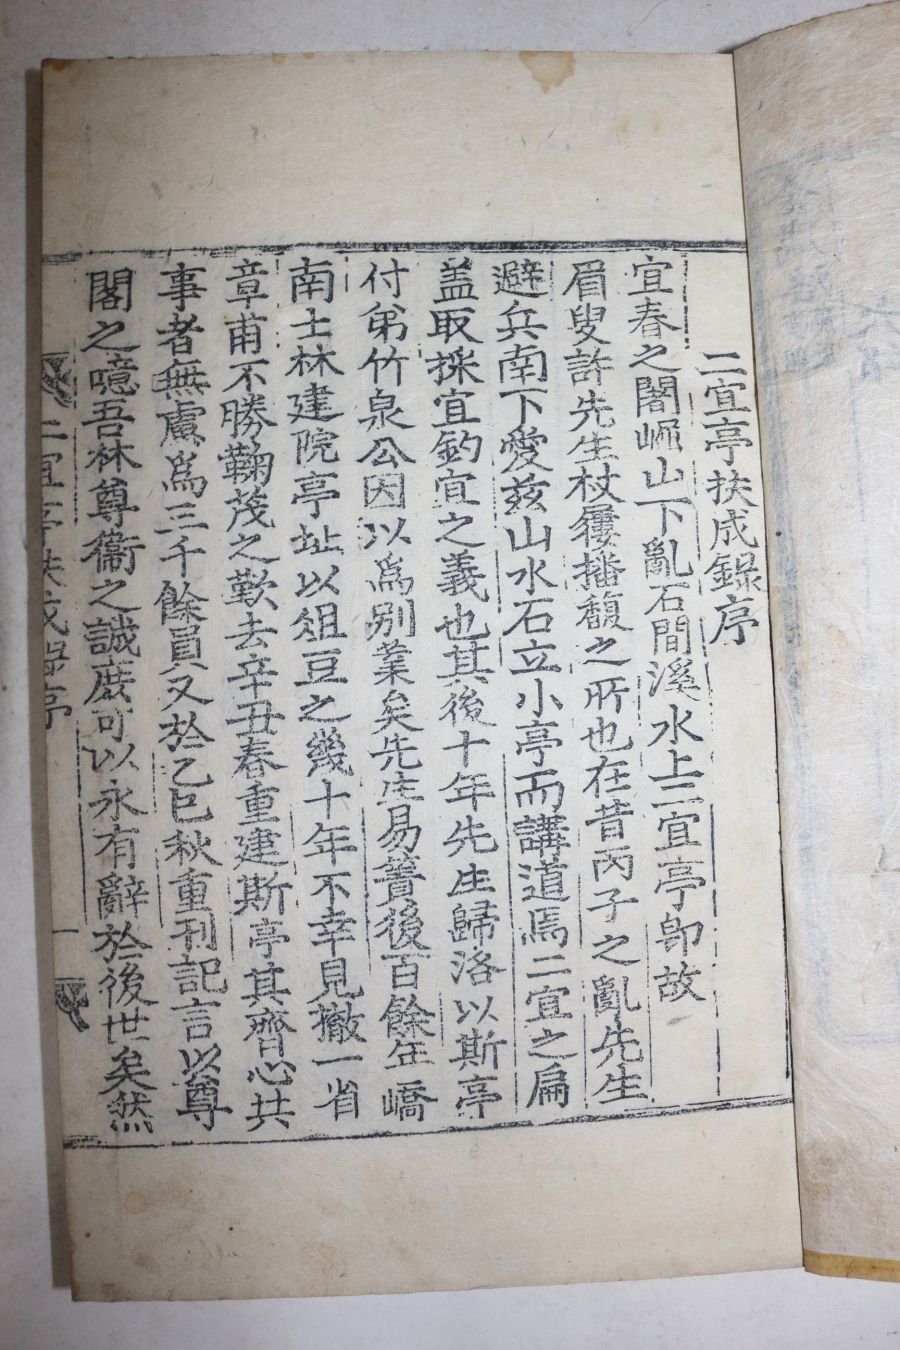 二宜亭扶成錄序
宜春之闍崛山下亂石間溪水上二宜亭卽故
眉叟許先生杖屨播馥之所也在昔丙子之亂先生
避兵南下愛茲山水石立小亭而講道焉二宜之扁
盖取採宜釣宜之義也其後十年先生歸洛以斯亭
付弟竹泉公因以爲別業矣先生易簀後百餘年嶠
南士林建院亭址以俎豆之幾十年不幸見撤一省
章甫不勝鞠茂之歎去辛丑春重建斯亭其齊心共
事者無慮爲三千餘員又於乙巳秋重刊記言以尊
閣之噫吾林尊衞之誠庶可以永有辭於後世矣然
二宜亭扶成錄序
一